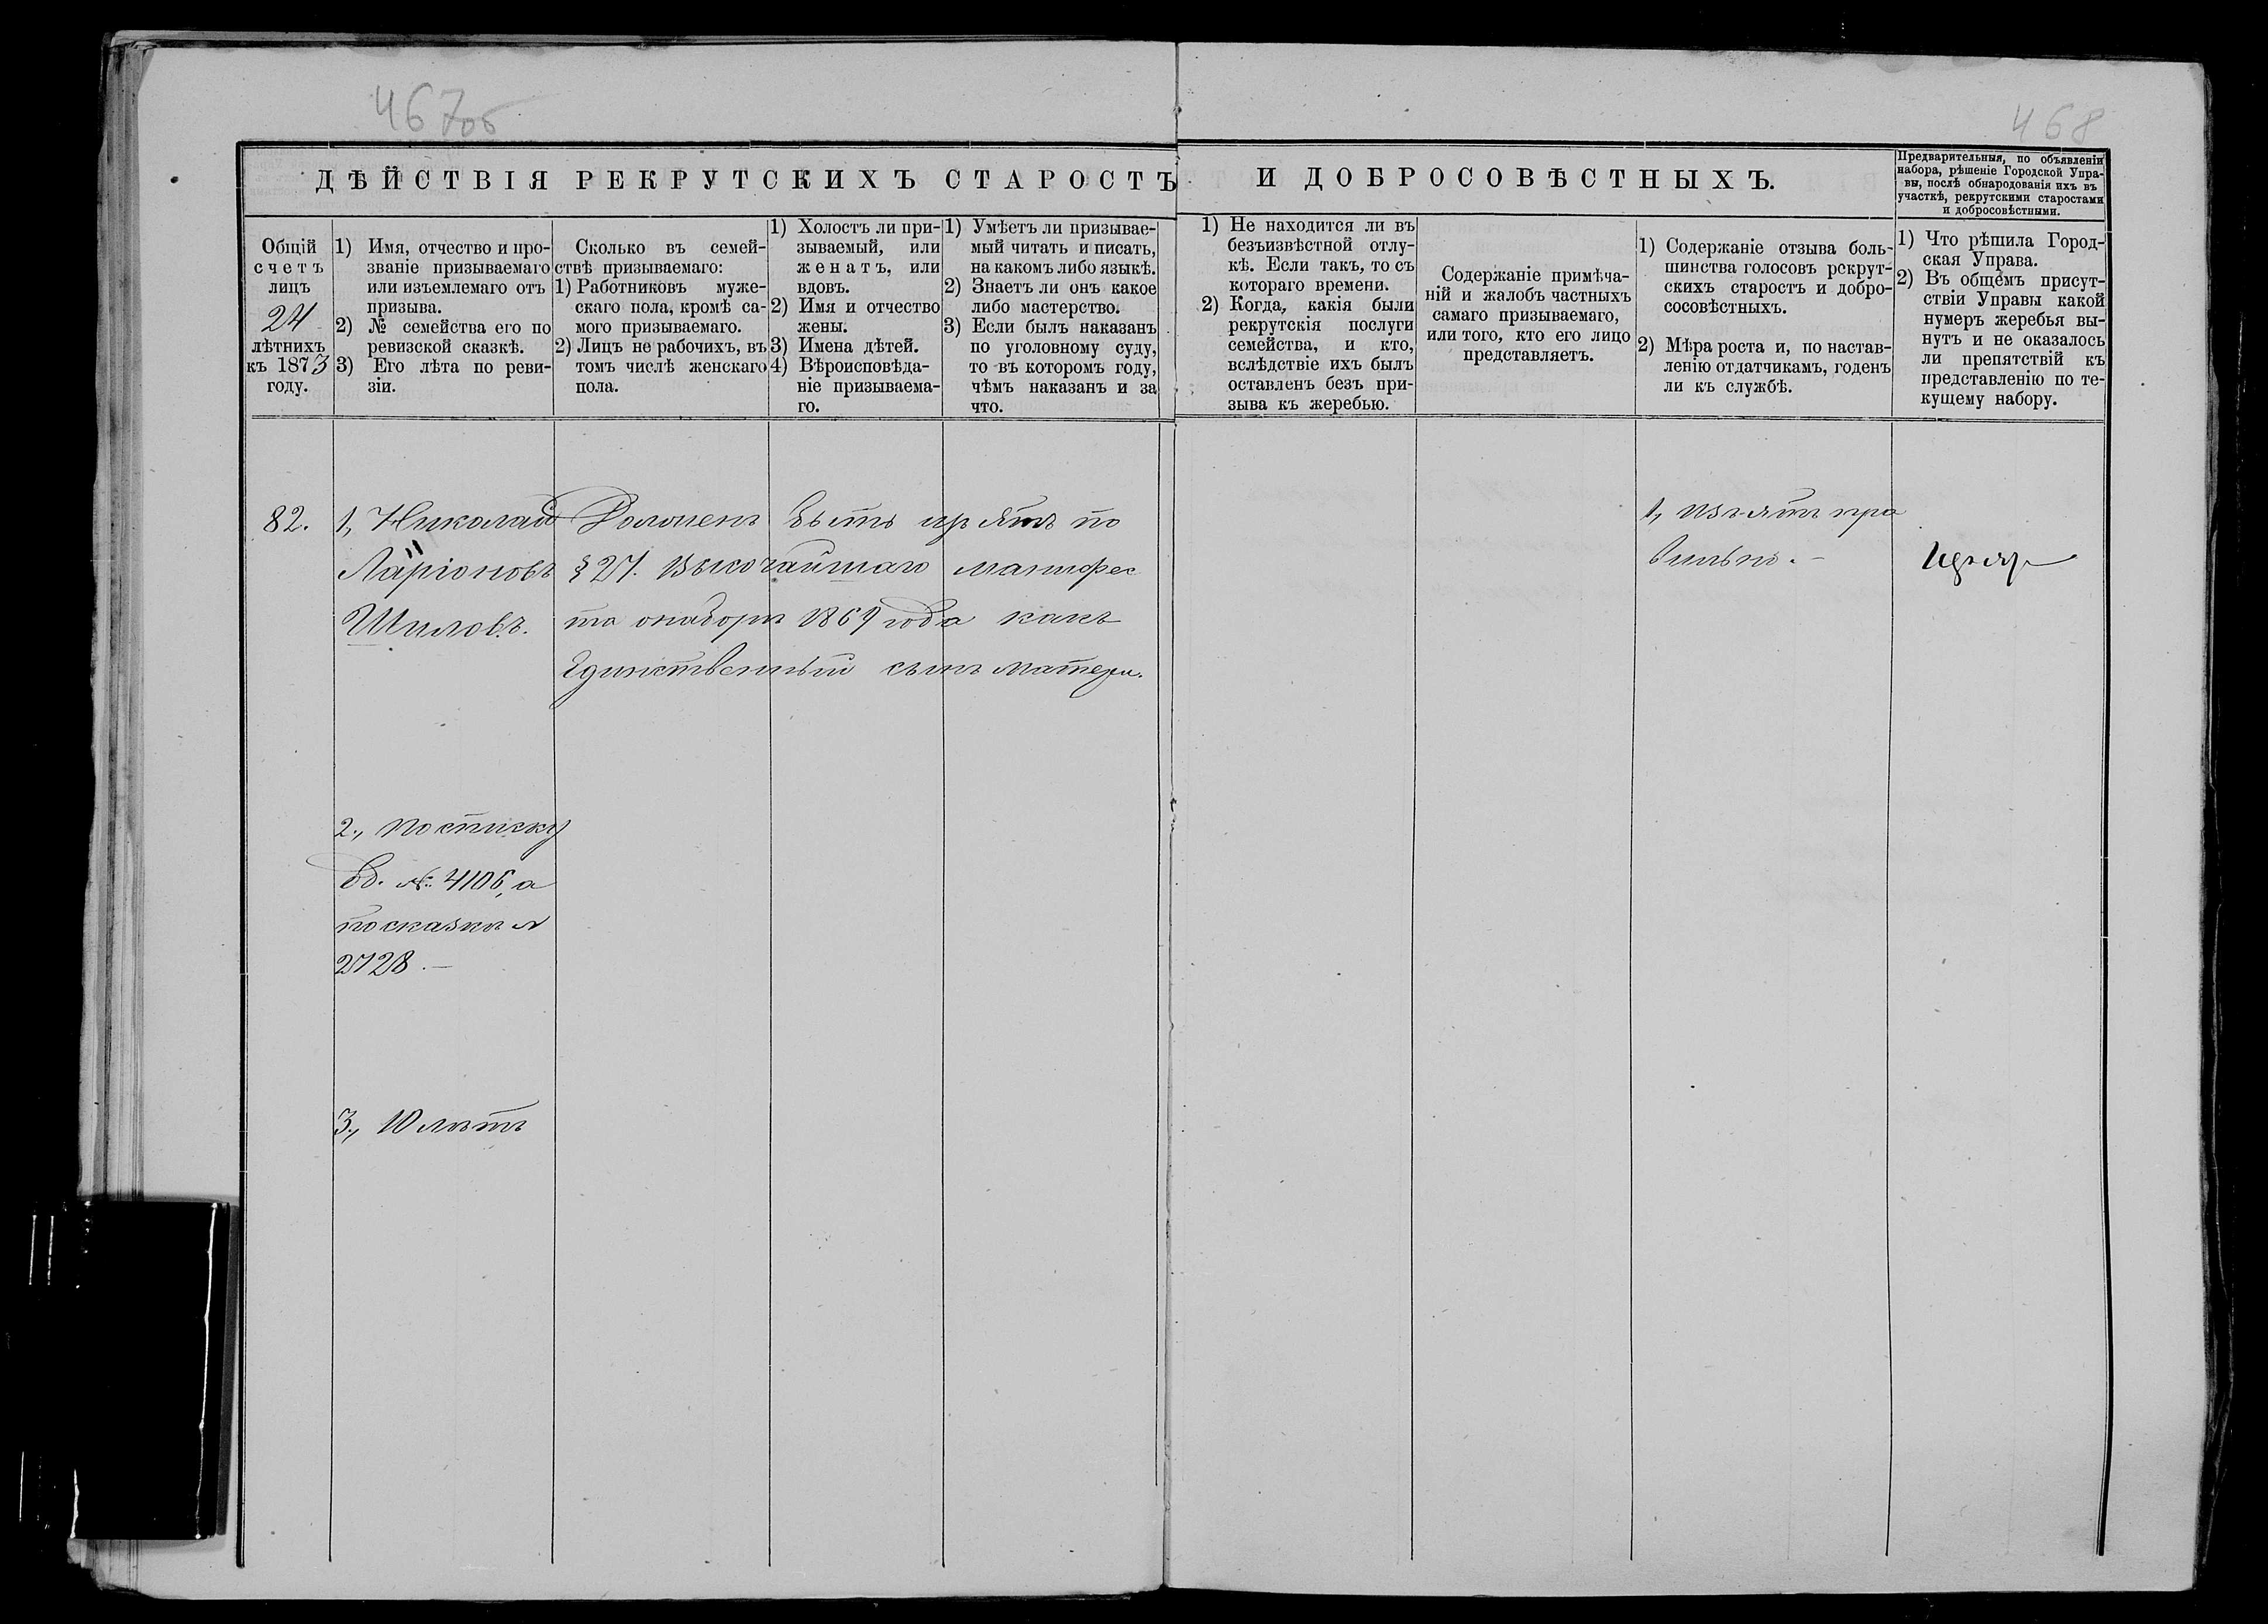 467об
468
ДѢЙСТВІЯ РЕКРУТСКИХЪ СТАРОСТЪ И ДОБРОСОВѢСТНЫХЪ.
Предварительныя, по объявленіи
набора, рѣшеніе Городской Упра-
вы, послѣ обнародованія ихъ въ
участкѣ, рекрутскими старостами
и добросовѣстными.
Общій
счетъ
лицъ
24
лѣтнихъ
къ 1873
году.
1) Имя, отчество и про-
званіе призываемаго
или изъемлемаго отъ
призыва.
2) № семейства его по
ревизской сказкѣ.
3) Его лѣта по реви-
зіи.
Сколько въ семей-
ствѣ призываемаго:
1) Работниковъ муже-
скаго пола, кромѣ са-
мого призываемаго.
2) Лицъ не рабочихъ, въ
томъ числѣ женскаго
пола.
1) Холостъ ли при-
зываемый, или
женатъ, или
вдовъ.
2) Имя и отчество
жены.
3) Имена дѣтей.
4) Вѣроисповѣда-
ніе призываема-
го.
1) Умѣетъ ли призывае-
мый читать и писать,
на какомъ либо языкѣ.
2) Знаетъ ли онъ какое
либо мастерство.
3) Если былъ наказанъ
по уголовному суду,
то въ которомъ году,
чѣмъ наказанъ и за
что.
1) Не находится ли въ
безъизвѣстной отлу-
кѣ. Если такъ, то съ
котораго времени.
2) Когда, какія были
рекрутскія послуги
семейства, и кто,
вслѣдствіе ихъ былъ
оставленъ безъ при-
зыва къ жеребью.
Содержаніе примѣча-
ній и жалобъ частныхъ
самаго призываемаго,
или того, кто его лицо
представляетъ.
1) Содержаніе отзыва боль-
шинства голосовъ рекрут-
скихъ старостъ и добро-
сосовѣстныхъ.
2) Мѣра роста и, по настав-
ленію отдатчикамъ, годенъ
ли къ службѣ.
1) Что рѣшила Город-
ская Управа.
2) Въ общемъ присут-
ствіи Управы какой
нумеръ жеребья вы-
нутъ и не оказалось
ли препятствій къ
представленію по те-
кущему набору.
82.
1, Николай
Ларіоновъ
Шиловъ.
Долженъ быть изъятъ по
§ 27. Высочайшаго манифес
та онаборѣ 1869 года какъ
Единственный сынъ матери.
1, Изъятъ пра
вильно.-
2., По списку
вд. №. 4106, а
по сказкѣ №
2728.-
3., 10 лѣтъ